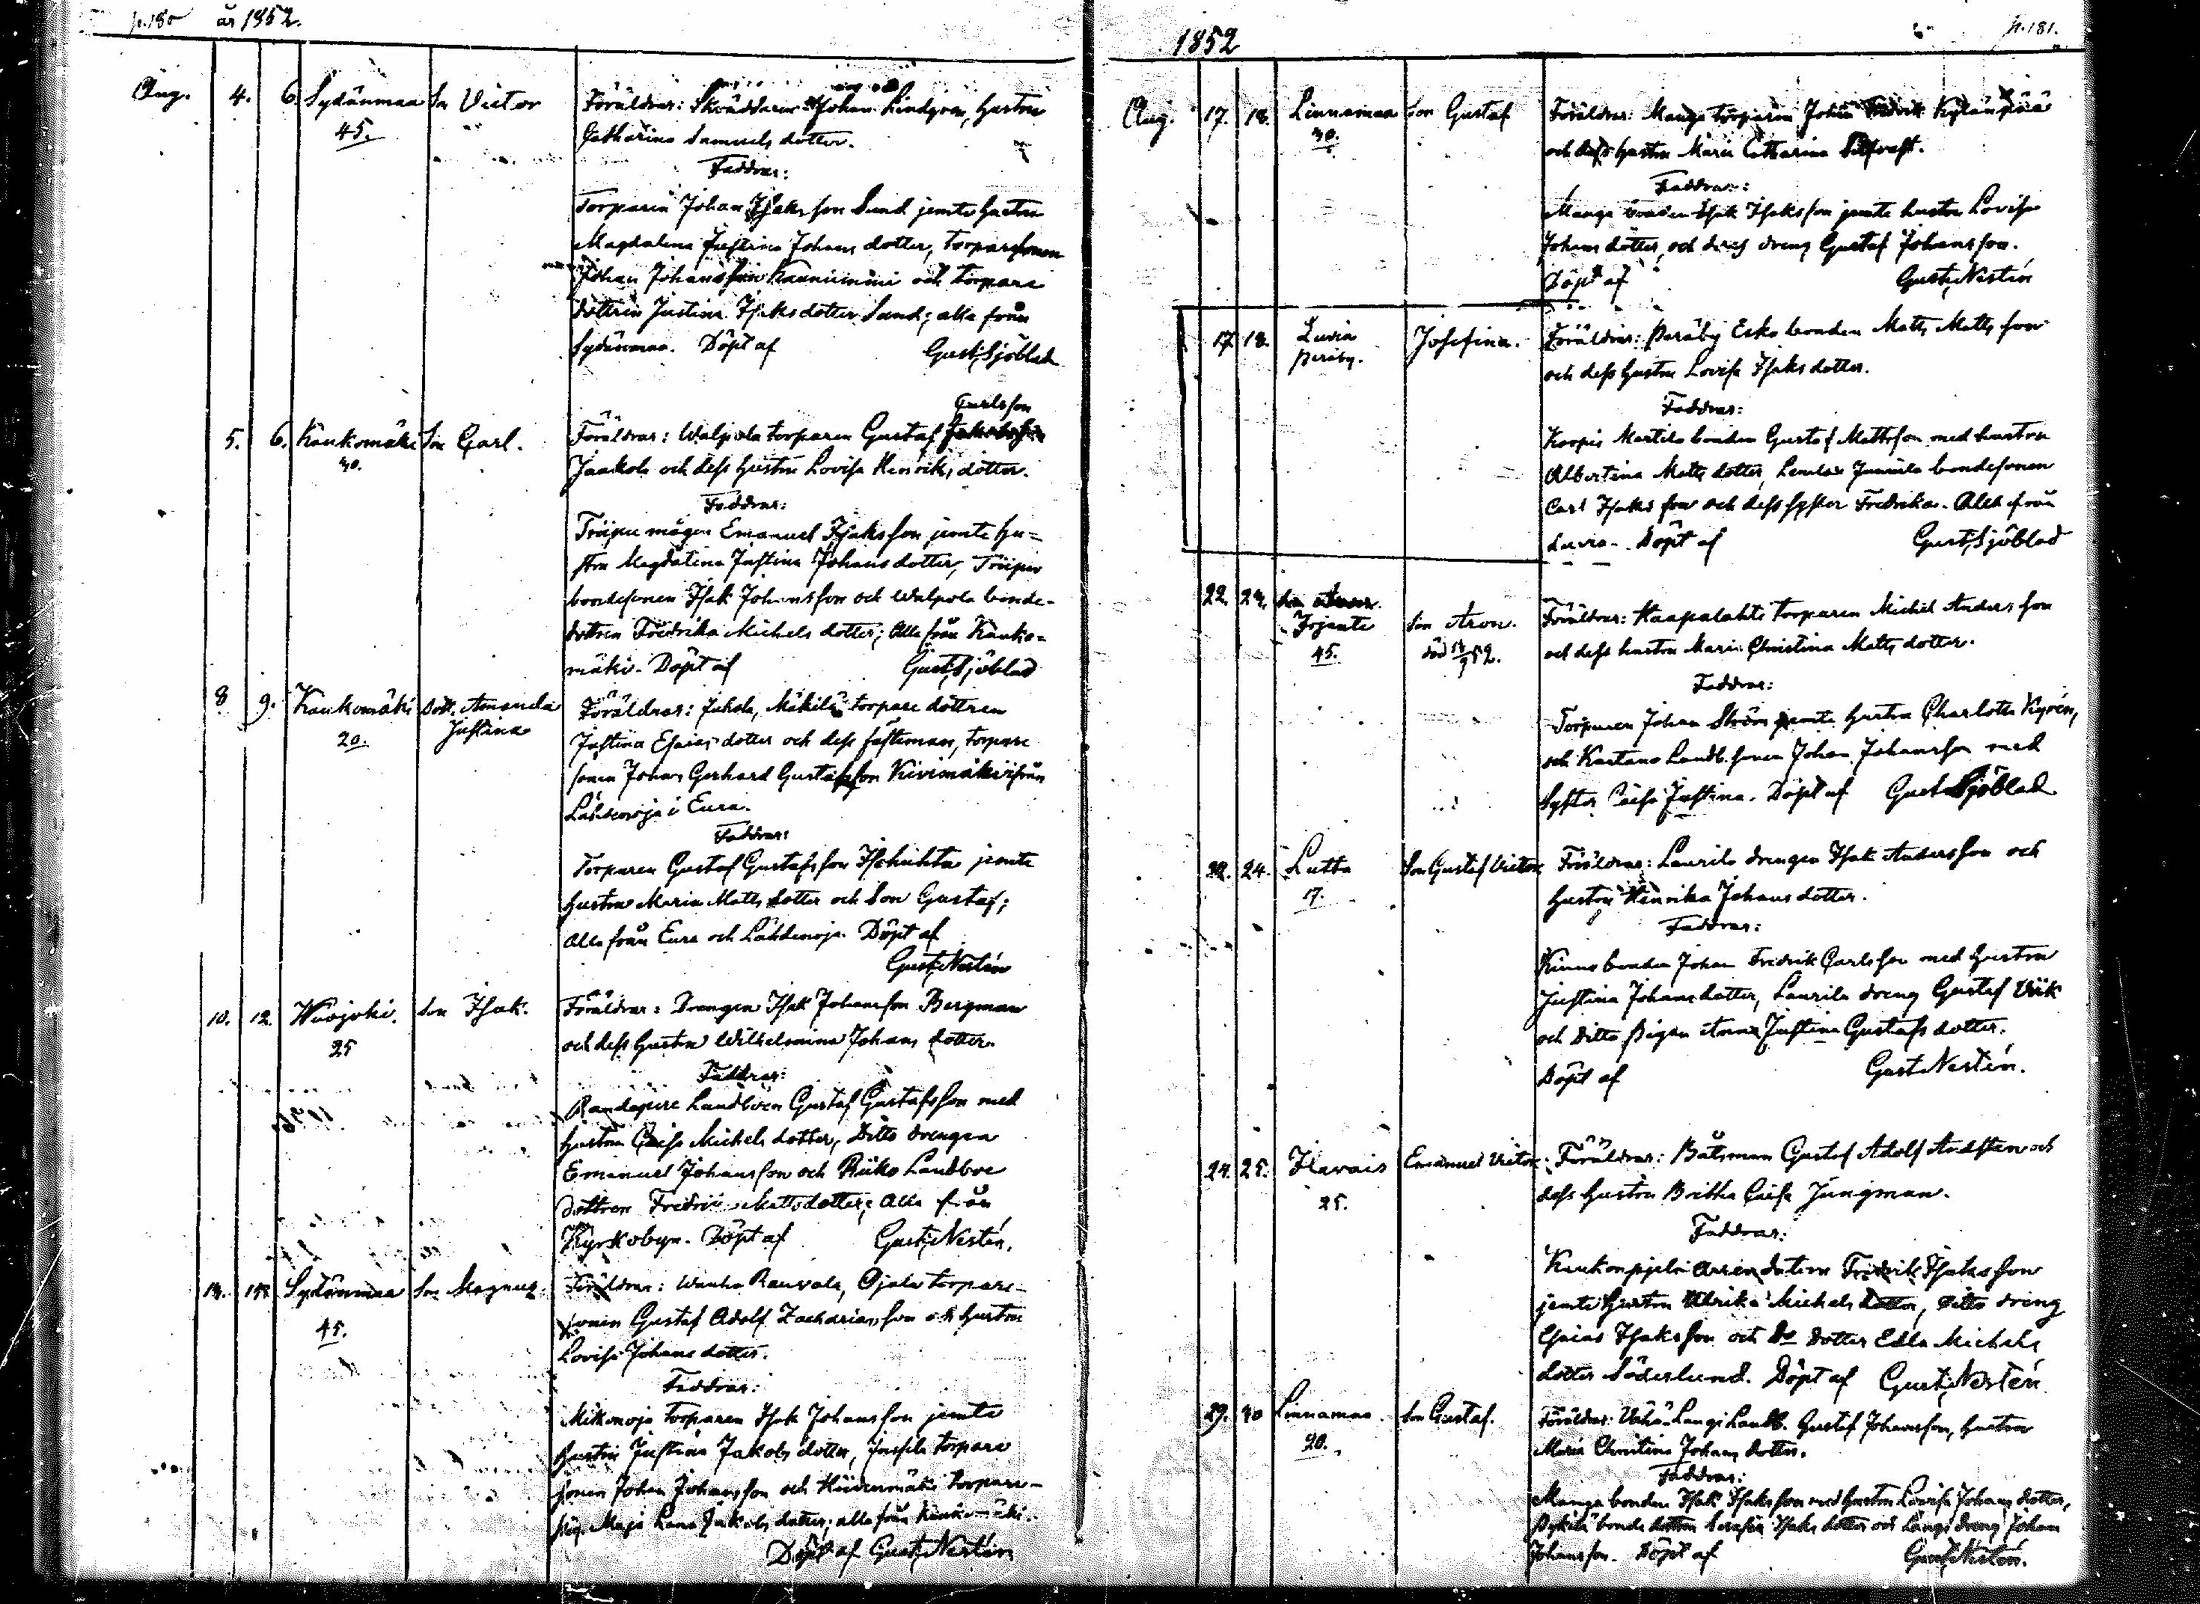 p. 180 år 1852.
Aug. 4. 6. Sydänmaa Son Victor Föräldrar: Skräddaren Johan Lindgren, hustru
45. Catharina Samuels dotter.
Faddrar:
Torparen Johan Isaksson Sund jemte hustru
Magdalena Justina Johans dotter, torparesonen
Johan Johansson Kauniimäki och torpare
dottren Justina Isaks dotter Sund; alla från
Sydänmaa. Döpt af Gust. Sjöblad
Carlsson
5. 6. Kaukomäki Son Carl. Föräldrar: Walpola torparen Gustaf
30. Jaakola och dess hustru Lovisa Henriks dotter.
Faddrar:
Träipu mågen Emanuel Isaksson jemte hu-
stru Magdalena Justina Johans dotter, Träipu
bondesonen Isak Johansson och Walpola bonde-
dottren Fredrika Michels dotter; Alla från Kauko-
mäki. Döpt af Gust. Sjöblad
8 9. Kaukomäki Dott. Amanda Föräldrar: Juhola, Mäkilä torpare dottren
20. Justina Justina Esaias dotter och dess fästeman, torpare
sonen Johan Gerhard Gustafsson Kivimäki från
Lähdenoja i Eura.
Faddrar:
Torparen Gustaf Gustafsson Isohuhta jemte
hustru Maria Matts dotter och Son Gustaf;
Alla från Eura och Lähdenoja. Döpt af
Gust. Nestén
10. 12. Wuojoki. Son Isak. Föräldrar: Drengen Isak Johansson Bergman
25 och dess hustru Wilhelmina Johans dotter.
Faddrar:
Randapere Landboen Gustaf Gustafsson med
hustru Caisa Michels dotter, Ditto drengen
Emanuel Johansson och Riiko Landboe
dottren Fredrika Mattsdotter; Alla från
Kyrkobyn. Döpt af Gust. Nestén.
14. 15. Sydänmaa Son Magnus. Föräldrar: Wanha Rauvala, Ojala torpare-
45. sonen Gustaf Adolf Zachariasson och hustru
Lovisa Johans dotter.
Faddrar:
Mikonoja torparen Isak Johansson jemte
hustru Justina Jakobs dotter, torpare
sonen Johan Johansson och Hiidenmäki torpare-
pig. Maja Lena Jakobs dotter; alla från Kaukomäki.
Döpt af Gust. Nestén
1852 p. 181.
Aug. 17. 18. Linnamaa Son Gustaf Föräldrar: Manga torparen Johan Fredrik Kylänpää
30. och dess hustru Maria Catharina
Faddrar:
Manga bonden Isak Isaksson jemte hustru Lovisa
Johans dotter, och deras dreng Gustaf Johansson.
Döpt af Gust. Nestén
17 18. Luvia Josefina. Föräldrar: Peräby Esko bonden Matts Matts son
Peräby. och dess hustru Lovisa Isaks dotter.
Faddrar:
Korpi Martila bonden Gustaf Mattsson med hustru
Albertina Matts dotter, Lemlax Junnila bondesonen
Carl Isaks son och dess syster Fredrika. Alla från
Luvia. Döpt af Gust. Sjöblad
22. 24.
Irjante Son Aron. Föräldrar: Haapalahti torparen Michel Anders son
45. död 52. och dess hustru Maria Christina Matts dotter.
Faddrar:
Torparen Johan Ström jemte hustru Charlotta Kyrén,
och Kartano Landb. sonen Johan Johansson med
Syster Caisa Justina. Döpt af Gust. Sjöblad
22. 24. Lutta Son Gustaf Victor Föräldrar: Laurila drengen Isak Andersson och
17. hustru Henrika Johans dotter.
Faddrar:
Kinno bonden Johan Fredrik Carlsson med hustru
Justina Johans dotter, Laurila dreng Gustaf Wiik
och Ditto pigan Anna Justina Gustafs dotter.
Döpt af Gust. Nestén.
24. 25. Ilavais Emanuel Victor. Föräldrar: Båtsman Gustaf Adolf Andstén och
25. dess hustru Britha Caisa Jungman.
Faddrar:
Kaukompjeli Arrendatorn Fredrik Isaksson
jemte hustru Ulrika Michels dotter, Ditto dreng
Esaias Isaksson och Do dotter Edla Michels
dotter Söderlund. Döpt af Gust. Nestén
29. 30 Linnamaa. Son Gustaf. Föräldrar: Vähä-Langi Landb. Gustaf Johansson, hustru
20. Maria Christina Johans dotter.
Faddrar:
Manga bonden Isak Isaksson med hustru Lovisa Johans dotter,
bonde dottren Serafia Isaks dotter och Langi dreng Johan
Johansson. Döpt af Gust. Nestén.